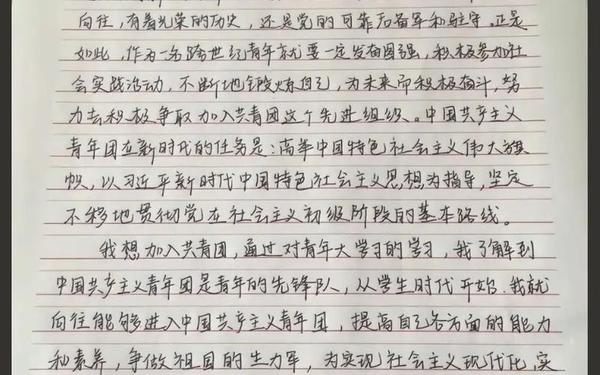 向往，有着光荣的历史，还是党的可靠后备军和助手。正是
如此，作为一名跨世纪青年就要一定发奋图强，积极参加社
会实践活动，不断地锻炼自己，为未来而积极奋斗，努
力去积极争取加入共青团这个先进组织。中国共产主义
青年团在新时代的任务是：高举中国特色社会主义伟大旗
帜，以习近平新时代中国特色社会主义思想为指导，坚定
不移地贯彻党在社会主义初级阶段的基本路线。
我想加入共青团，通过对青年大学习的学习，我了解到
中国共产主义青年团是青年的先锋队，从学生时代开始，我就
向往能够进入中国共产主义青年团，提高自己各方面的能力
和素养，争做祖国的生力军，为实现社会主义现代化，实